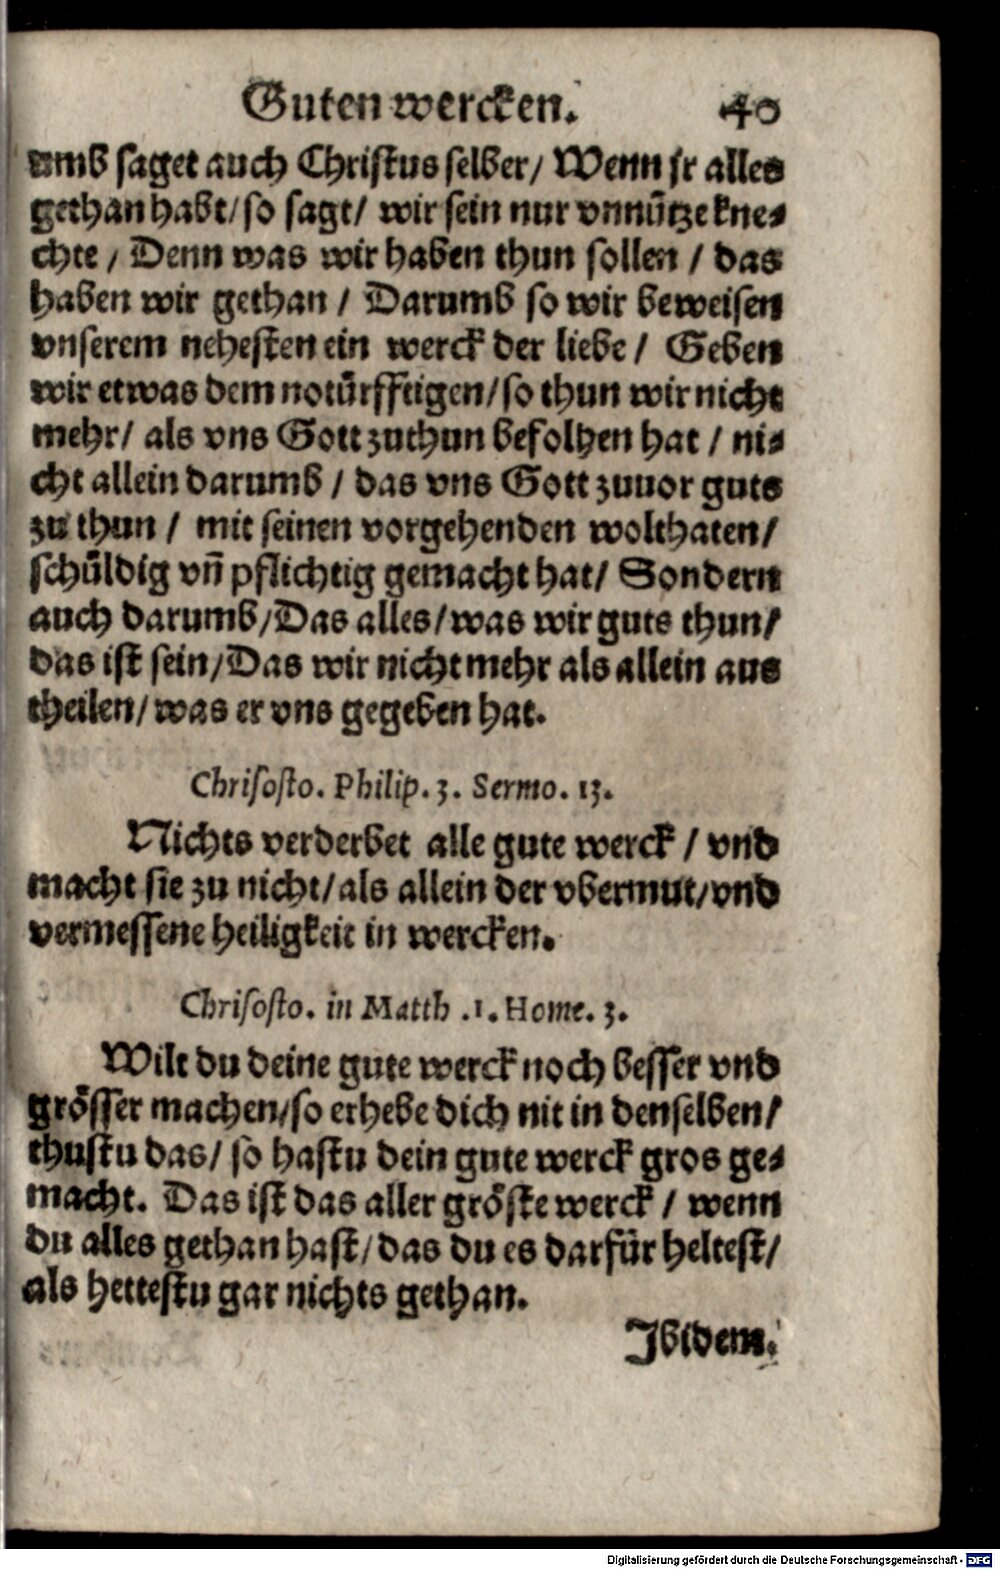 Guten wercken. 40
umb saget auch Christus selber/ Wenn jr alles
gethan habt/ so sagt/ wir sein nur vnnütze kne-
chte / Denn was wir haben thun sollen / das
haben wir gethan / Darumb so wir beweisen
vnserem nehesten ein werck der liebe / Geben
wir etwas dem notürfftigen/ so thun wir nicht
mehr/ als vns Gott zuthun befolhen hat / ni-
cht allein darumb / das vns Gott zuuor guts
zu thun / mit seinen vorgehenden wolthaten/
schüldig vn̄ pflichtig gemacht hat/ Sondern
auch darumb/ Das alles/ was wir guts thun/
das ist sein/ Das wir nicht mehr als allein aus
theilen/ was er vns gegeben hat.
Chrisosto. Philip. 3. Sermo. 13.
Nichts verderbet alle gute werck / vnd
macht sie zu nicht/ als allein der vbermut/ vnd
vermessene heiligkeit in wercken.
Chrisosto. in Matth .1. Home. 3.
Wilt du deine gute werck noch besser vnd
grösser machen/ so erhebe dich nit in denselben/
thustu das/ so hastu dein gute werck gros ge-
macht. Das ist das aller gröste werck / wenn
du alles gethan hast/ das du es darfür heltest/
als hettestu gar nichts gethan.
Ibidem.
Digitalisierung gefördert durch die Deutsche Forschungsgemeinschaft - DFG